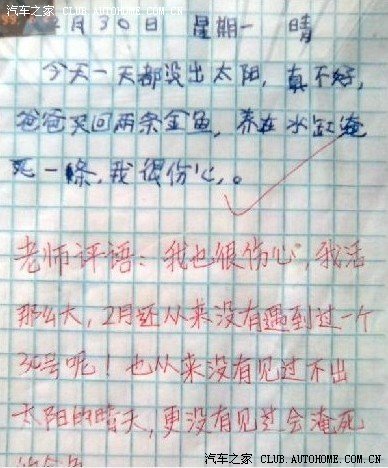 汽车之家 CLUB.AUTOHOME.COM.CN
月30日 星期一 晴
今天一天都没出太阳,真不好,
爸爸买回两条金鱼,养在水缸淹
死一條,我很伤心,。
老师评语:我也很伤心,我活
那么大,2月还从来没有遇到过一个
30号呢!也从来没有见过不出
太阳的晴天,更没有见过会淹死
的金鱼
汽车之家 CLUB.AUTOHOME.COM.CN